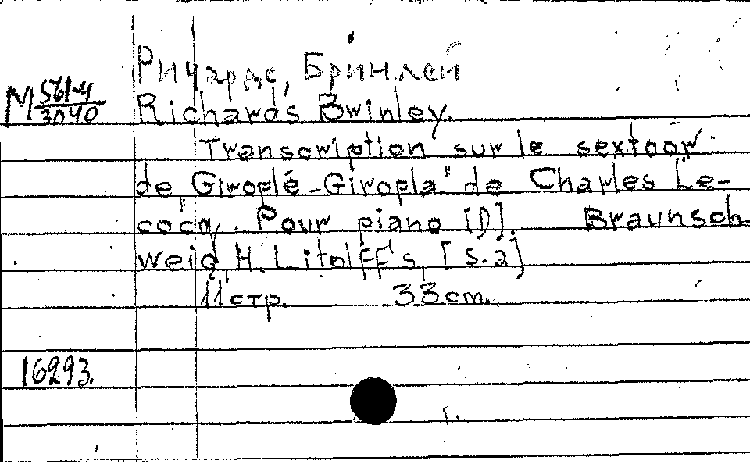 Ричардс, Бринлей
М 561-4/3040
Richards Brinley.
Transcription sur le sextoor
de Giroplé-Giropla" de Charles Le-
cocq. Pour piano [)]. Braunsch-
weig H. Litolff's [s.a]
11 стр. 33 cm.
16293.